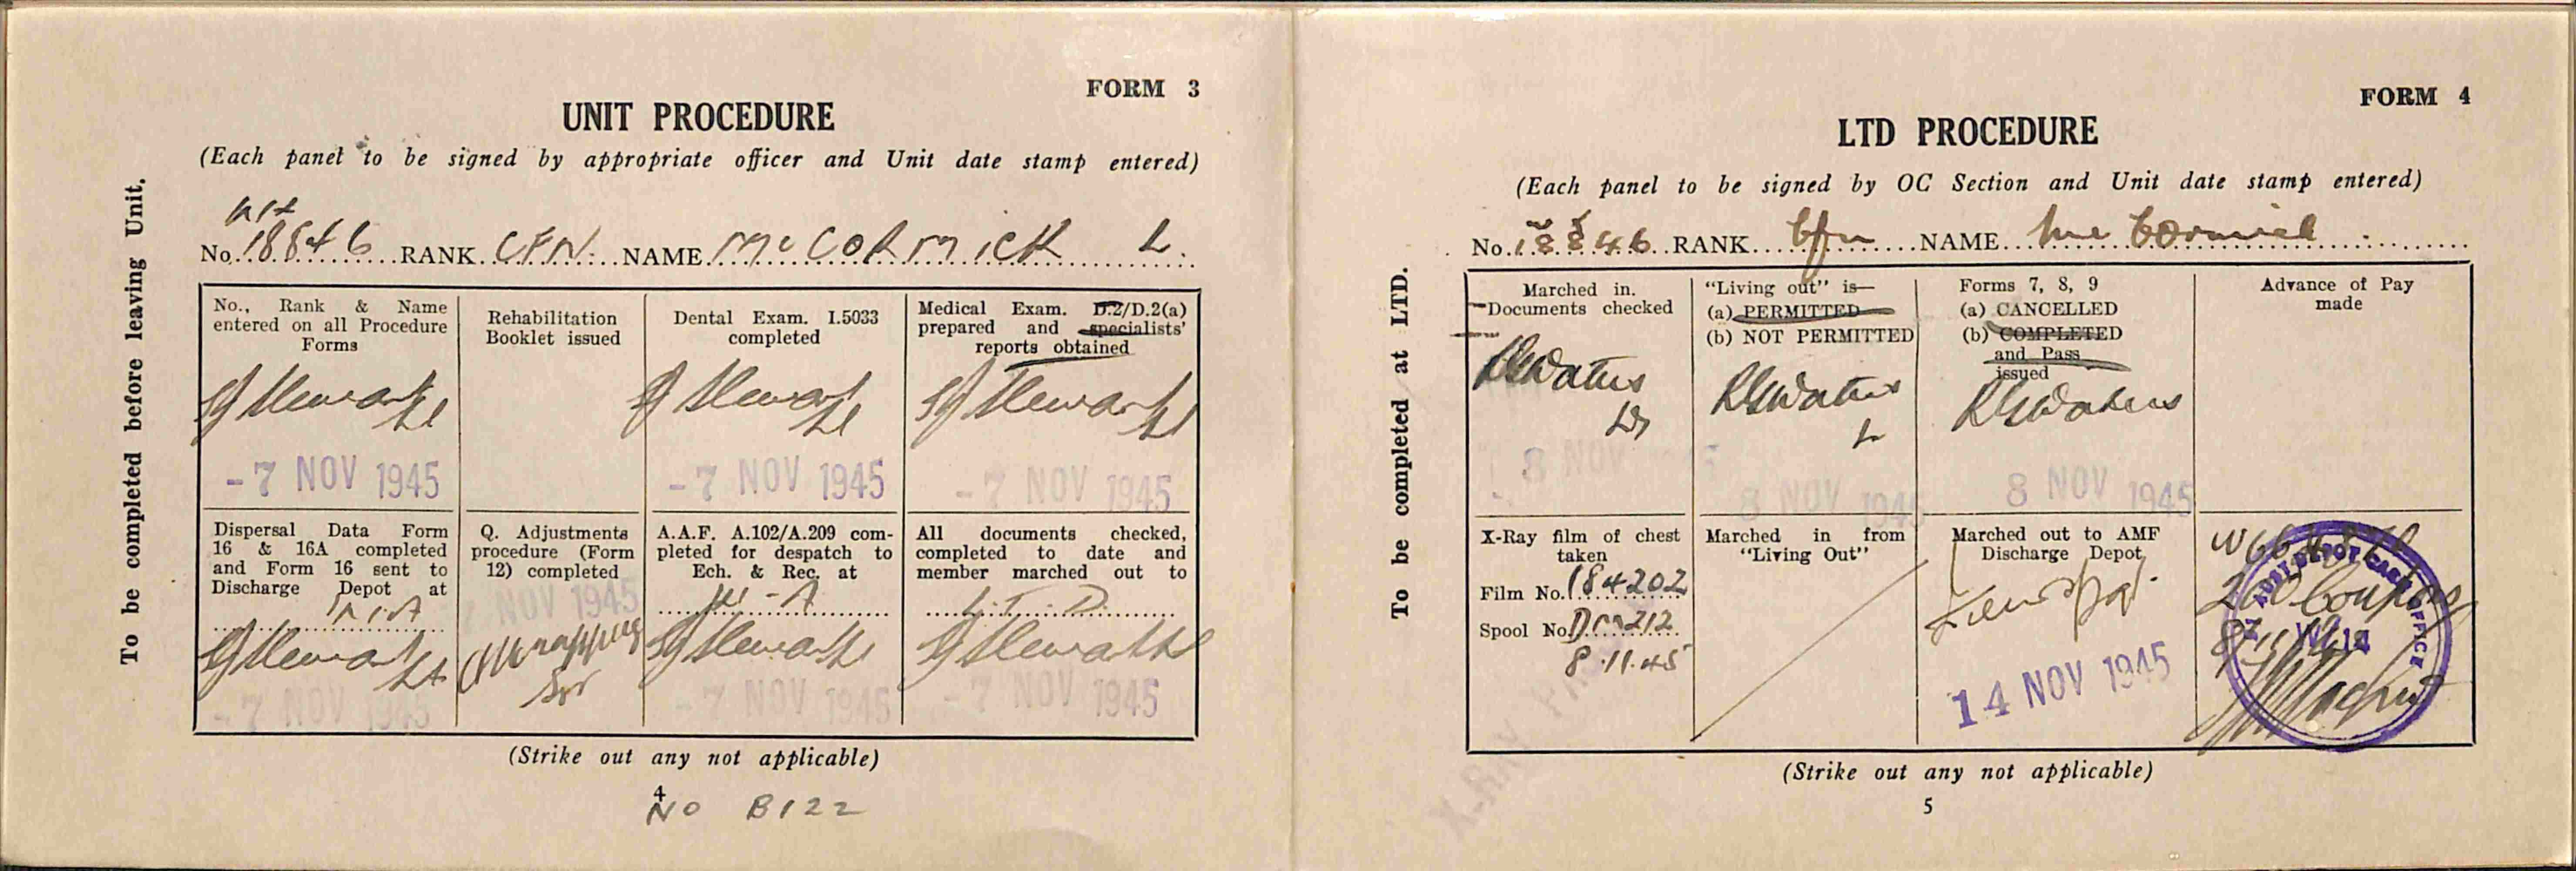 FORM 3
UNIT PROCEDURE
(Each panel to be signed by appropriate officer and Unit date stamp entered)
To be completed before leaving Unit.
No. 18846 RANK CFN. NAME McCORMICK L.
No., Rank & Name
entered on all Procedure
Forms
Stewart Lt
-7 NOV 1945
Rehabilitation
Booklet issued
Dental Exam. I.5033
completed
Stewart Lt
-7 NOV 1945
Medical Exam. D.2/D.2(a)
prepared and specialists'
reports obtained
Stewart Lt
-7 NOV 1945
Dispersal Data Form
16 & 16A completed
and Form 16 sent to
Discharge Depot at
W.A
Stewart Lt
-7 NOV 1945
Q. Adjustments
procedure (Form
12) completed
7 NOV 1945
A.A.F. A.102/A.209 com-
pleted for despatch to
Ech. & Rec. at
W-A
Stewart Lt
-7 NOV 1945
All documents checked,
completed to date and
member marched out to
L.T.D.
Stewart Lt
-7 NOV 1945
(Strike out any not applicable)
4
NO B122
FORM 4
LTD PROCEDURE
(Each panel to be signed by OC Section and Unit date stamp entered)
To be completed at LTD.
No. 18846 RANK Cfn NAME McCormick
Marched in.
Documents checked
Waters
Lt
8 NOV
"Living out" is—
(a) PERMITTED
(b) NOT PERMITTED
Waters
8 NOV 1945
Forms 7, 8, 9
(a) CANCELLED
(b) COMPLETED
and Pass
issued
Waters
8 NOV 1945
Advance of Pay
made
X-Ray film of chest
taken
Film No. 184202
Spool No. DM212
8.11.45
X-RAY
Marched in from
"Living Out"
Marched out to AMF
Discharge Depot
14 NOV 1945
Coupons
OFFICE
(Strike out any not applicable)
5